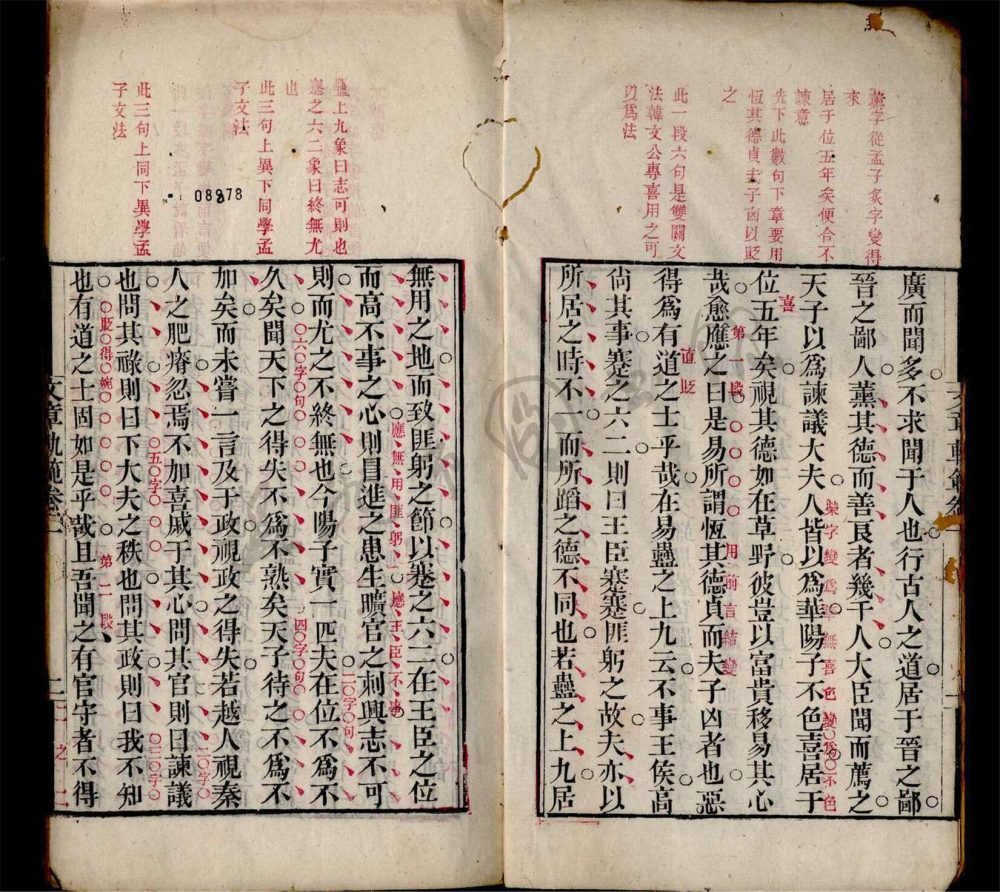 薰字從孟子炙字變得
來
居于位五年矣便合不
諫意
先下此數句下章要用
恆其德貞夫子凶以貶
之
此一段六句是雙關文
法韓文公專喜用之可
以爲法
廣而聞多不求聞于人也行古人之道居于晉之鄙
晉之鄙人薰其德而善良者幾千人大臣聞而薦之
天子以爲諫議大夫人皆以爲華陽子不色喜居于
榮字變爲華無喜色變爲不色
喜
位五年矣視其德如在草野彼豈以富貴移易其心
第一段
用前言結變
哉愈應之曰是易所謂恆其德貞而夫子凶者也惡
直貶
得爲有道之士乎哉在易蠱之上九云不事王侯高
尚其事蹇之六二則曰王臣蹇蹇匪躬之故夫亦以
所居之時不一而所蹈之德不同也若蠱之上九居
蠱上九象曰志可則也
蹇之六二象曰終無尤
也
此三句上異下同學孟
子文法
此三句上同下異學孟
子文法
08978
無用之地而致匪躬之節以蹇之六二在王臣之位
應無用匪躬
應王臣不事
而高不事之心則冒進之患生曠官之刺興志不可
則而尤之不終無也今陽子實一匹夫在位不爲不
六字句
二字句
久矣聞天下之得失不爲不熟矣天子待之不爲不
四字句
加矣而未嘗一言及于政視政之得失若越人視秦
人之肥瘠忽焉不加喜戚于其心問其官則曰諫議
二字
也問其祿則曰下大夫之秩也問其政則曰我不知
五字
三字
也有道之士固如是乎哉且吾聞之有官守者不得
貶得婉
第二段
文章軌範卷二
二
之二